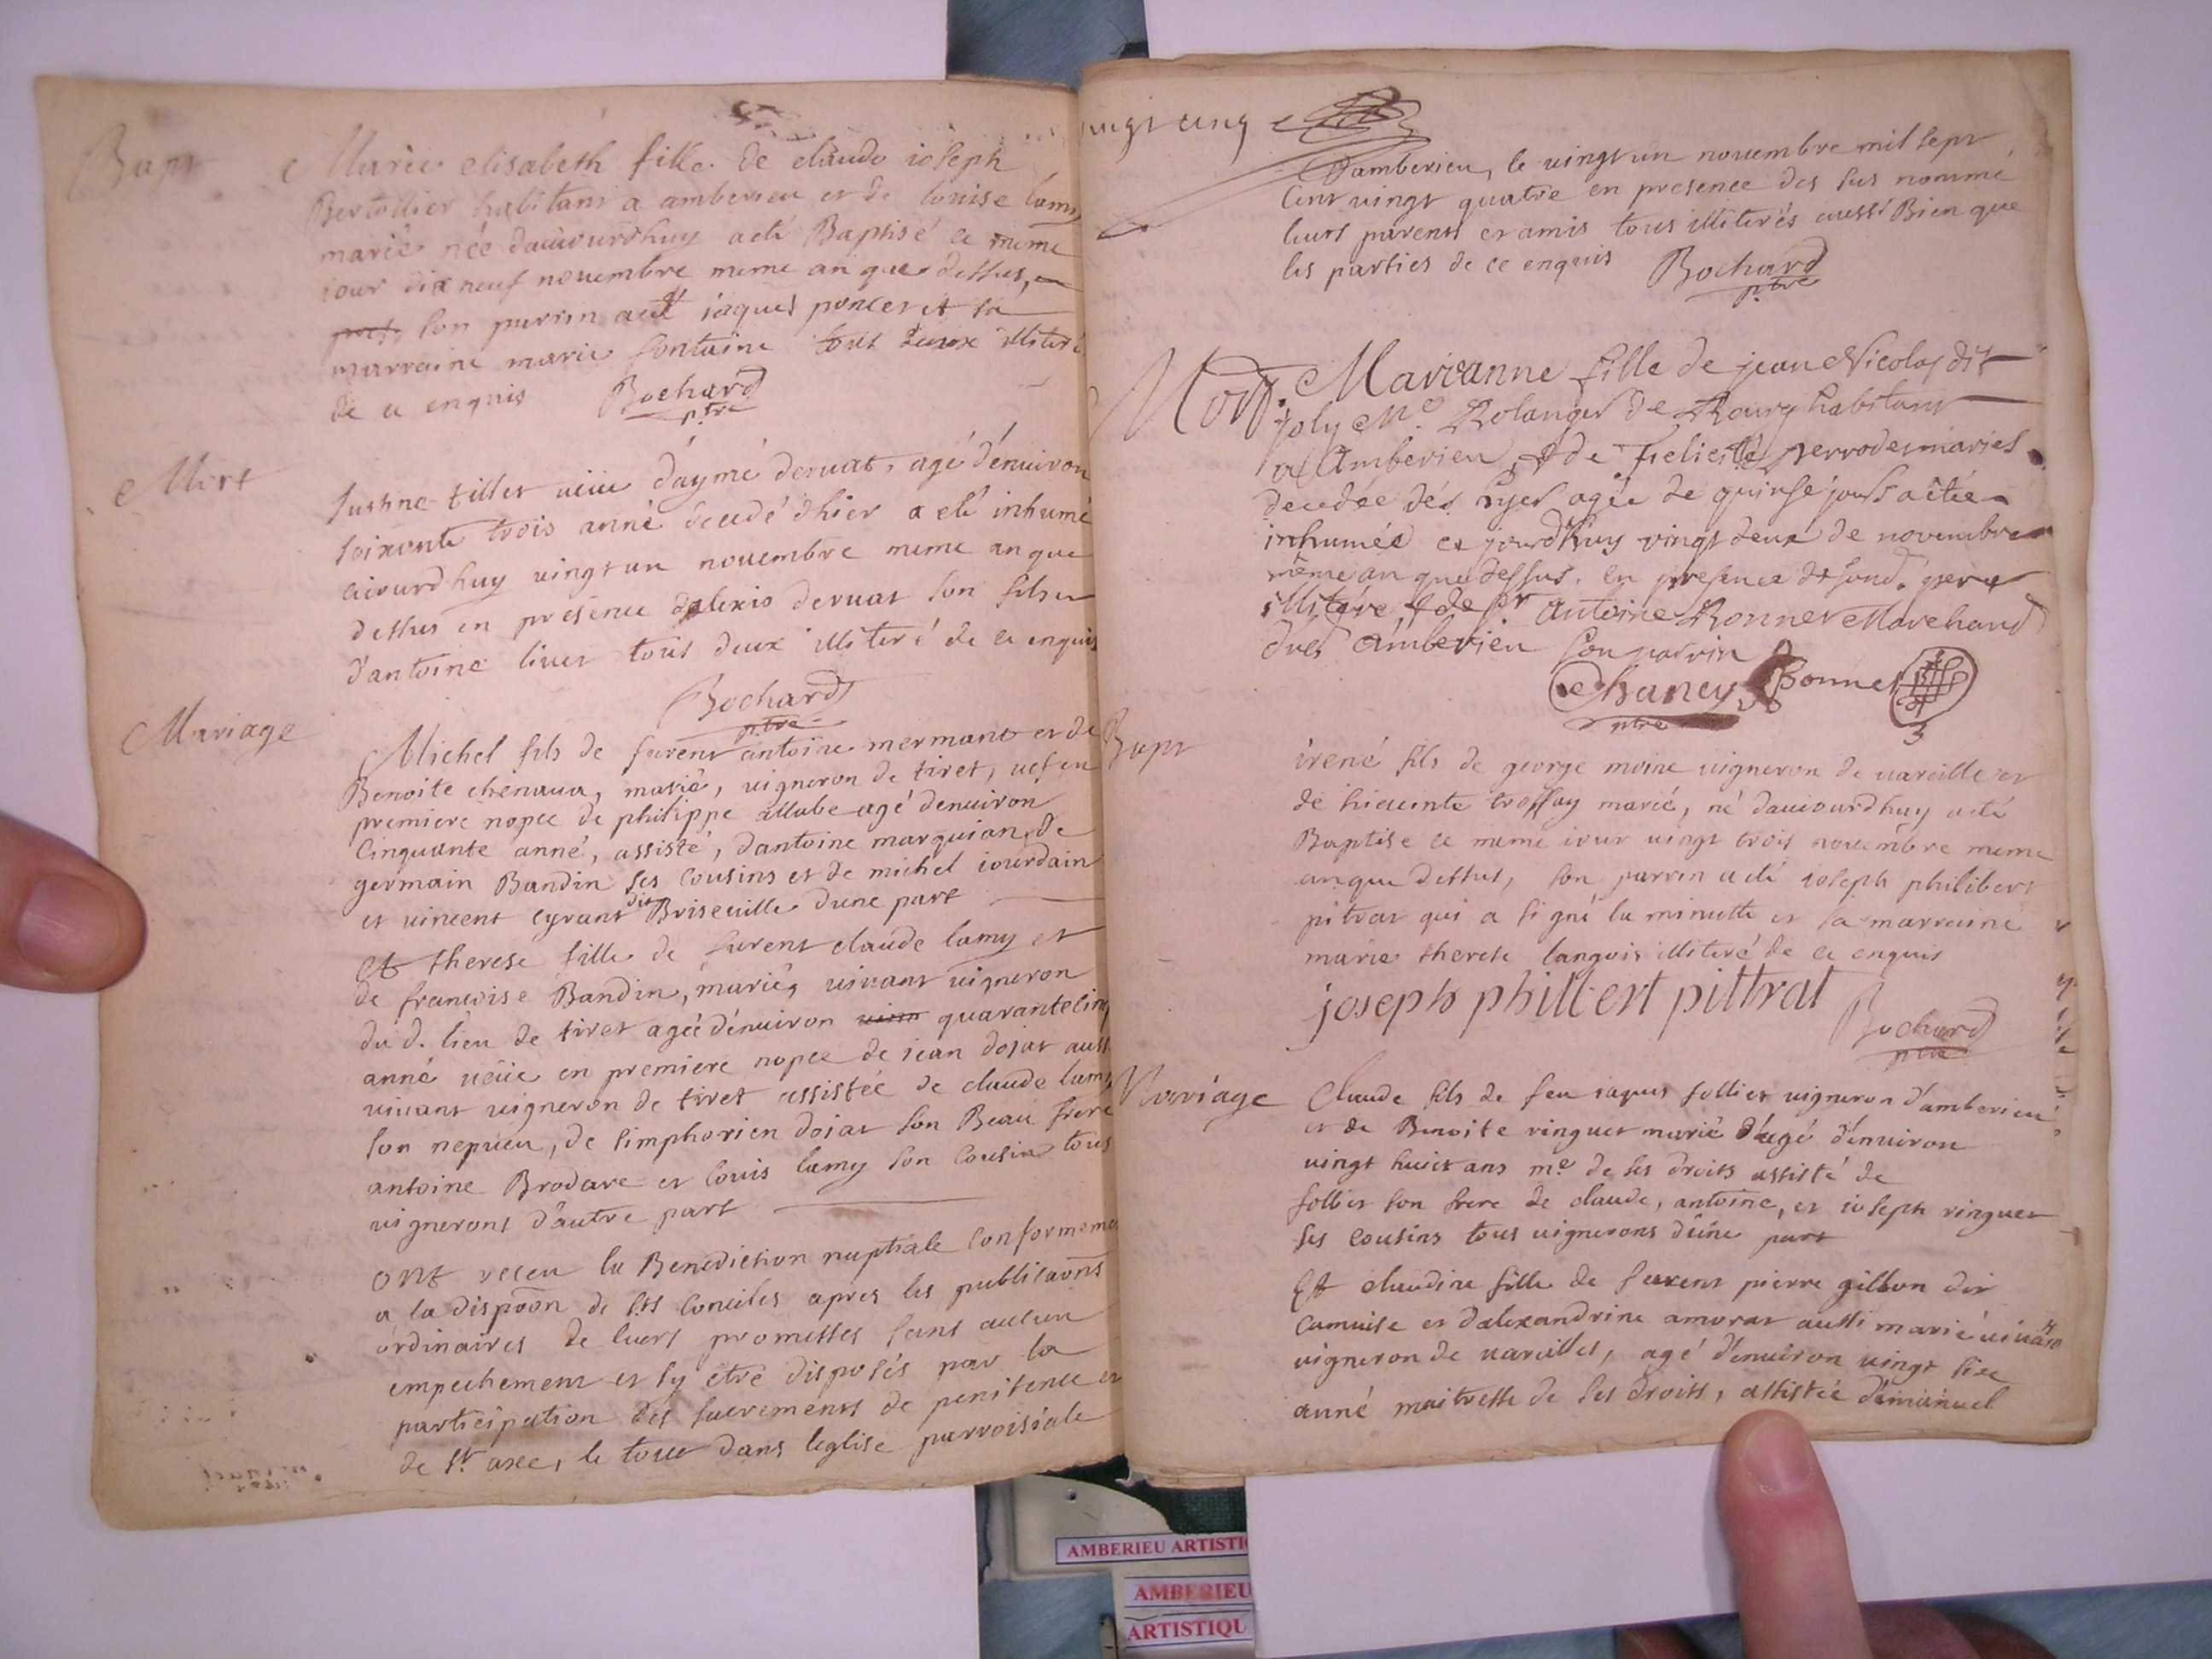 Bapt
Marie elisabeth fille de claude ioseph
Bertollier habitant a amberieu et de louise lamy
marié née dauiourdhuy a eté Baptisé le meme
iour dix neuf nouembre meme an que dessus,
son parrin a eté iaques poncet et sa
marraine marie fontaine tous deux illiteré
de ce enquis Bochard
ptre
Mort
Justine tillet ueüe d'aymé deruat, agé d'enuiron
soixante trois anné decedé d'hier a eté inhumé
aiourdhuy uingt un nouembre meme an que
dessus en présence dalexis deruat son fils et
d'antoine liuet tous deux illiteré de ce enquis
Bochard
ptre
Mariage
Michel fils de furent antoine mermant et de
Benoite chenaua, marié, uigneron de tiret, uef en
premiere nopce de philippe allabe agé denuiron
Cinquante anné, assisté, dantoine marquian, de
germain Bandin ses cousins et de michel iourdain
et uincent cyrant dit Briseuille dune part
Et therese fille de furent claude lamy et
de francoise Bandin, mariés uiuant uigneron
du d. lieu de tiret agée d'enuiron quarante cinq
anné ueüe en premiere nopce de iean dojat aussi
uiuant uigneron de tiret assistée de claude lamy
son nepueu, de simphorien dojat son Beau frere
antoine Brodare et louis lamy son cousin tous
uignerons d'autre part
ont receu la Benediction nuptiale conformement
a la dispōōn de sts conciles apres les publicaōns
ordinaires de leurs promesses sans aucun
empechement et sy etre disposés par la
participation des sacrements de penitence et
de st. axce, le tout dans leglise parroisiale
uingt cinq
d'amberieu, le uingt un nouembre mil sept
Cent uingt quatre en presence des sus nommé
leurs parents et amis tous illiterés aussi Bien que
les parties de ce enquis Bochard
ptre
Mort.
Marianne fille de jean Nicolas dit
joly Me. Bolanger de Bourg habitant
a Amberieu, & de Felicité perrodes mariés
decedée dés hyer agée de quinse jours a êtée
inhumée ce jourdhuy vingt deux de novembre
même an que dessus. en presence de sond. pere
illitére & de sr antoine Bonnet Marchand
dud amberieu son parrin
Chaney Bonnet
ptre
Bapt
irené fils de george moine uigneron de uareille et
de hiacinte trossay marié, né dauiourdhuy a eté
Baptise le meme iour uingt trois nouembre meme
an que dessus, son parrin a eté ioseph philibert
pitrat qui a signé la minutte et sa marraine
marie therese langois illiteré de ce enquis
joseph philbert pittrat
Bochard
ptre
Mariage
Claude fils de feu iaques sollier uigneron d'amberieu
et de Benoite ringuet marié d'agé d'enuiron
uingt huict ans me. de ses droits assisté de
sollier son frere de claude, antoine, et ioseph ringuet
ses cousins tous uignerons d'une part
Et claudine fille de furent pierre gillon dit
camuise et dalexandrine amorat aussi marié uiuāts
uigneron de uareilles, agé d'enuiron uingt sixe
anné maitresse de ses droits, assistée d'emanuel
AMBERIEU ARTISTI
AMBERIEU
ARTISTIQU